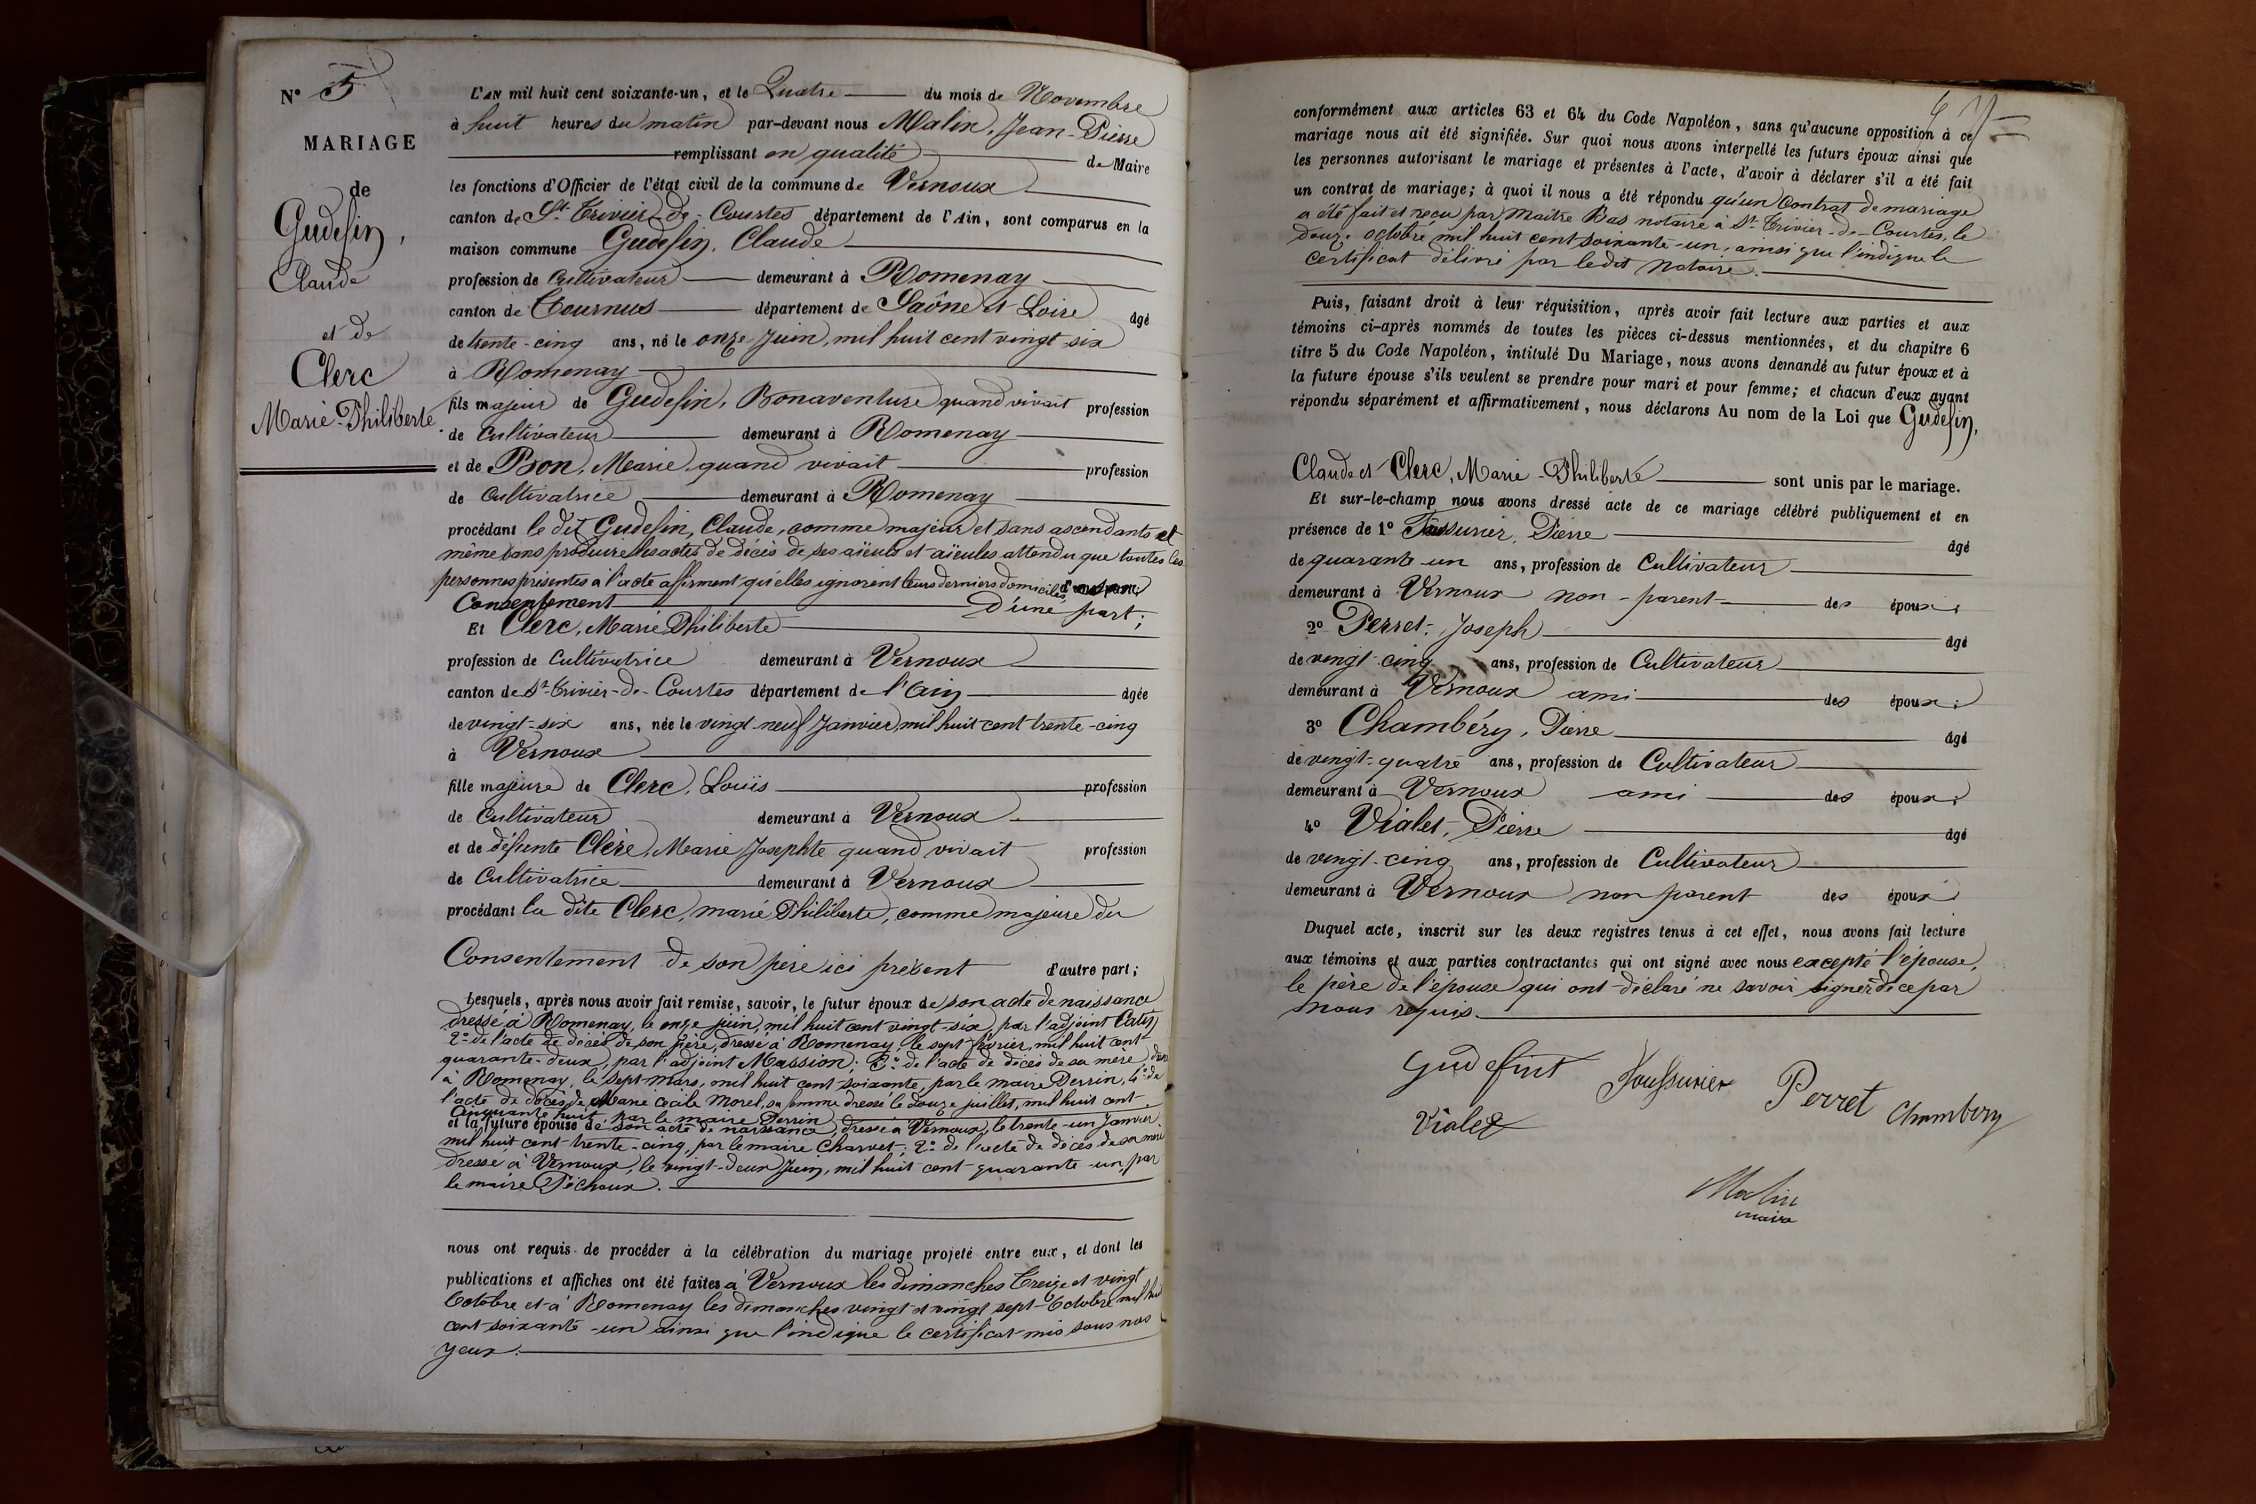 N° 5
MARIAGE
de
Gudefin,
Claude
et de
Clerc
Marie-Philiberte.
L'AN mil huit cent soixante-un, et le Quatre du mois de Novembre
à huit heures du matin par-devant nous Malin, Jean-Pierre
remplissant en qualité de Maire
les fonctions d'Officier de l'état civil de la commune de Vernoux
canton de St Trivier-de-Courtes département de l'Ain, sont comparus en la
maison commune Gudefin, Claude
profession de Cultivateur demeurant à Romenay
canton de Tournus département de Saône et Loire âgé
de trente-cinq ans, né le onze Juin, mil huit cent vingt-six
à Romenay
fils majeur de Gudefin, Bonaventure quand vivait profession
de Cultivateur demeurant à Romenay
et de Bon, Marie quand vivait profession
de Cultivatrice demeurant à Romenay
procédant le dit Gudefin, Claude, comme majeur et sans ascendants et
même sans produire les actes de décès de ses aïeuls et aïeules attendu que toutes les
personnes présentes à l'acte affirment qu'elles ignorent leurs derniers domiciles
Consentement D'une part;
Et Clerc, Marie Philiberte
profession de Cultivatrice demeurant à Vernoux
canton de St-Trivier-de-Courtes département de l'Ain âgée
de vingt-six ans, née le vingt-neuf Janvier mil huit cent trente-cinq
à Vernoux
fille majeure de Clerc, Louis profession
de Cultivateur demeurant à Vernoux
et de défunte Clère, Marie Josephte quand vivait profession
de Cultivatrice demeurant à Vernoux
procédant la dite Clerc, marie Philiberte, comme majeure du
Consentement de son père ici présent d'autre part;
Lesquels, après nous avoir fait remise, savoir, le futur époux de son acte de naissance
dressé à Romenay, le onze juin, mil huit cent vingt-six, par l'adjoint Catin
2° de l'acte de décès de son père, dressé à Romenay, le sept février, mil huit cent
quarante-deux, par l'adjoint Massion; 3° de l'acte de décès de sa mère
à Romenay, le sept mars, mil huit cent soixante, par le maire Perrin, 4° de
l'acte de décès de Marie Cécile Morel, sa femme dressé le douze juillet, mil huit cent
cinquante huit, par le maire Perrin
et la future épouse de son acte de naissance, dressé à Vernoux, le trente-un Janvier
mil huit cent trente-cinq, par le maire Charvet; 2° de l'acte de décès de sa mère
dressé à Vernoux, le vingt-deux Juin, mil huit cent quarante-un, par
le maire Péchoux.
nous ont requis de procéder à la célébration du mariage projeté entre eux, et dont les
publications et affiches ont été faites à Vernoux les dimanches treize et vingt
Octobre et à Romenay les dimanches vingt et vingt sept Octobre mil huit
cent soixante-un ainsi que l'indique le certificat mis sous nos
yeux.
conformément aux articles 63 et 64 du Code Napoléon, sans qu'aucune opposition à ce
mariage nous ait été signifiée. Sur quoi nous avons interpellé les futurs époux ainsi que
les personnes autorisant le mariage et présentes à l'acte, d'avoir à déclarer s'il a été fait
un contrat de mariage; à quoi il nous a été répondu qu'un Contrat de mariage
a été fait et reçu par Maître Bas notaire à St-Trivier-de-Courtes, le
douze octobre mil huit cent soixante-un, ainsi que l'indique le
certificat délivré par ledit Notaire.
Puis, faisant droit à leur réquisition, après avoir fait lecture aux parties et aux
témoins ci-après nommés de toutes les pièces ci-dessus mentionnées, et du chapitre 6
titre 5 du Code Napoléon, intitulé Du Mariage, nous avons demandé au futur époux et à
la future épouse s'ils veulent se prendre pour mari et pour femme; et chacun d'eux ayant
répondu séparément et affirmativement, nous déclarons Au nom de la Loi que Gudefin,
Claude et Clerc, Marie-Philiberte sont unis par le mariage.
Et sur-le-champ nous avons dressé acte de ce mariage célébré publiquement et en
présence de 1° Toussurier, Pierre âgé
de quarante-un ans, profession de Cultivateur
demeurant à Vernoux non-parent des époux;
2° Perret, Joseph âgé
de vingt-cinq ans, profession de Cultivateur
demeurant à Vernoux ami des époux;
3° Chambéry, Pierre âgé
de vingt-quatre ans, profession de Cultivateur
demeurant à Vernoux ami des époux;
4° Vialet, Pierre âgé
de vingt-cinq ans, profession de Cultivateur
demeurant à Vernoux non parent des époux
Duquel acte, inscrit sur les deux registres tenus à cet effet, nous avons fait lecture
aux témoins et aux parties contractantes qui ont signé avec nous excepté l'épouse,
le père de l'épouse qui ont déclaré ne savoir signer de ce par
nous requis.
Gudefint Toussurier Perret Chambery
Vialet
Malin
maire